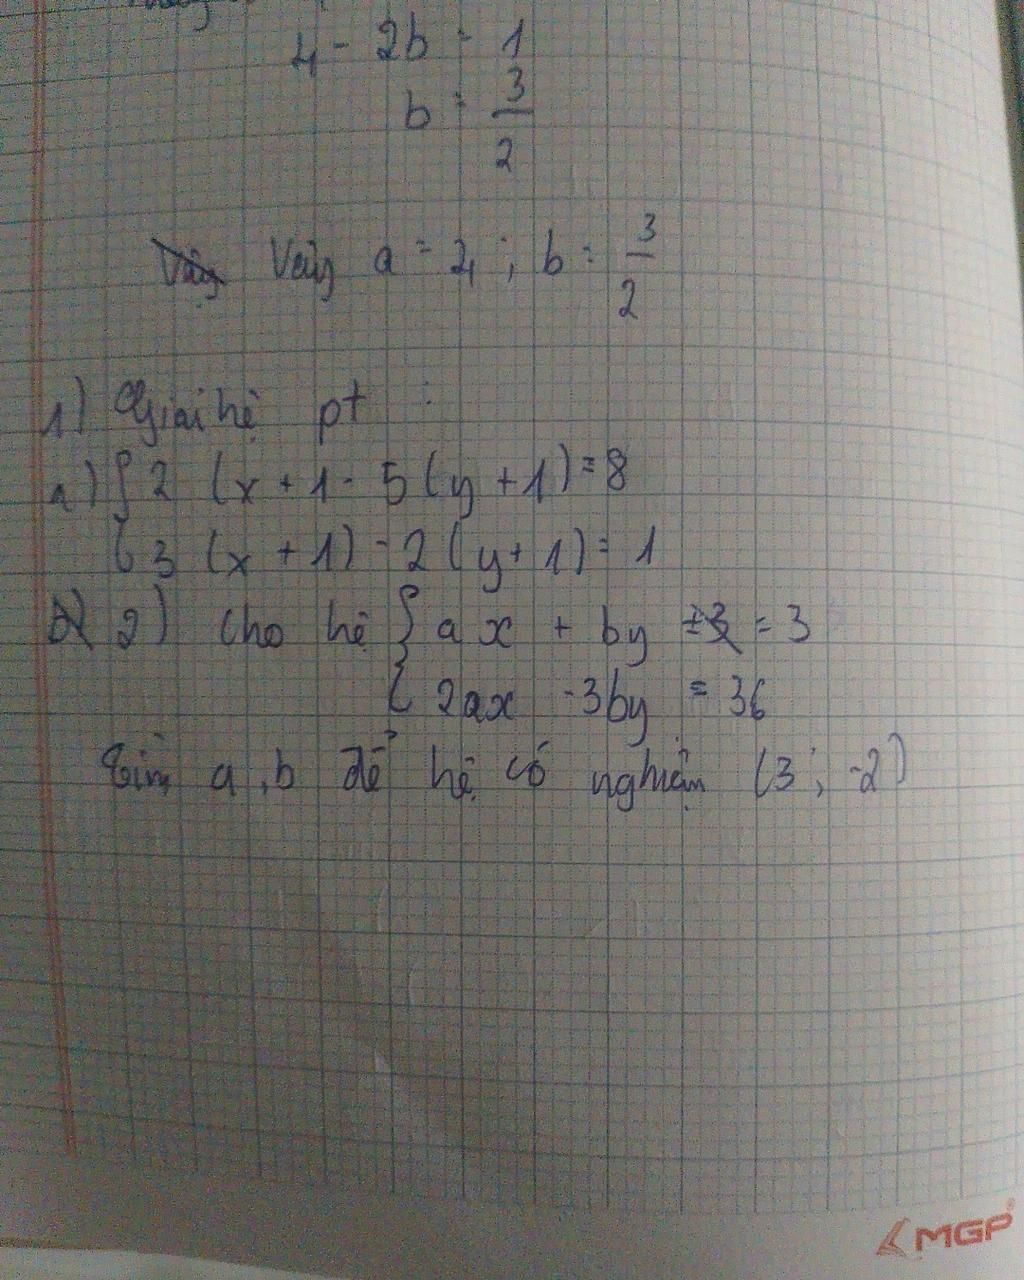 4 - 2b = 1
b = 3/2
Vậy a = 4 ; b = 3/2
1) Giải hệ pt :
a) { 2 (x + 1 - 5 (y + 1) = 8
{ 3 (x + 1) - 2 (y + 1) = 1
2) Cho hệ { ax + by = 3
{ 2ax - 3by = 36
Tìm a, b để hệ có nghiệm (3 ; -2)
MGP